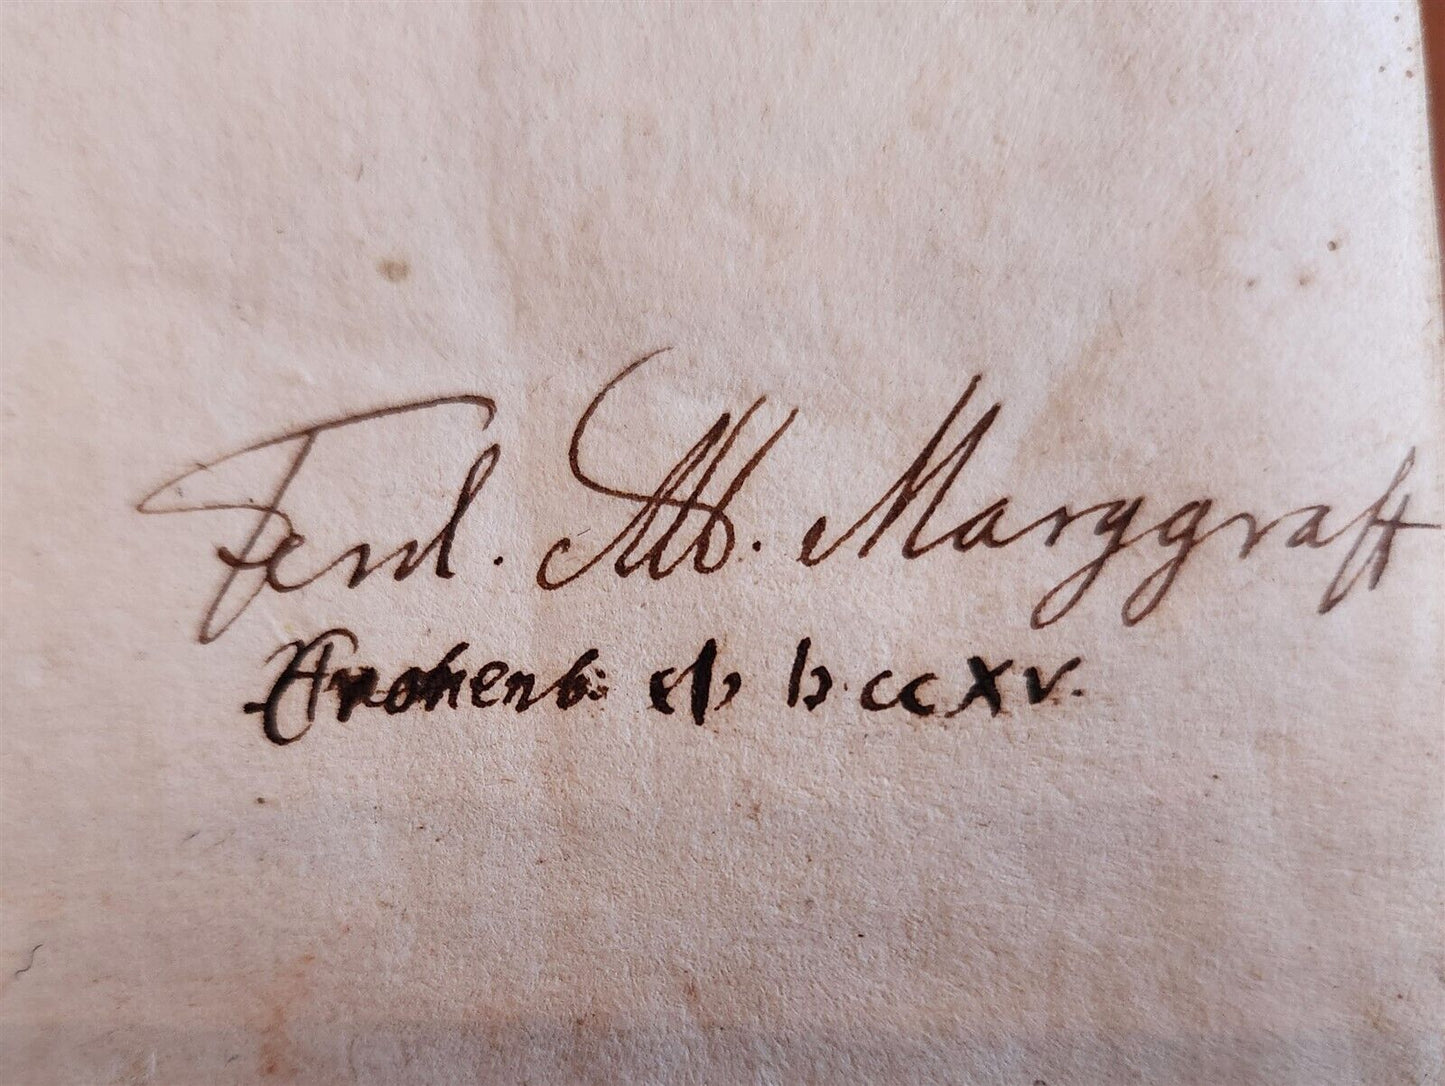 Ferd. Alb. Marggraff
cIↄ Iↄ CCXV.